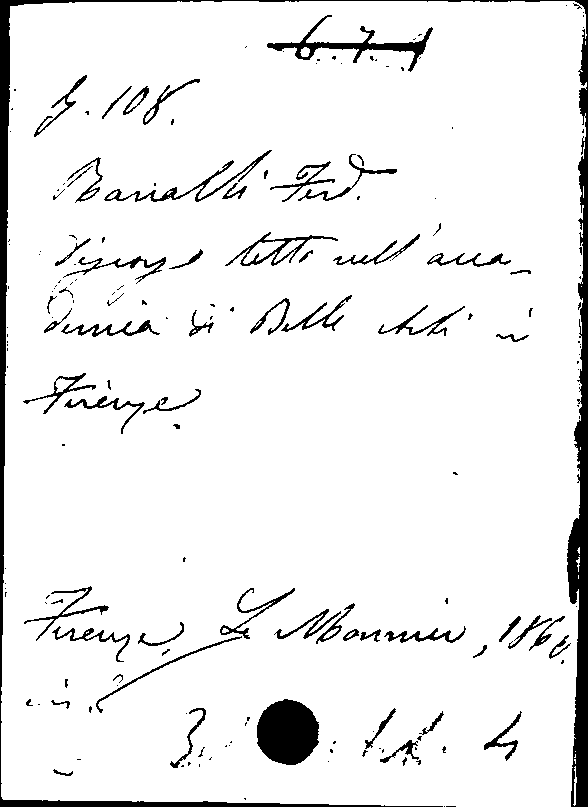 6.7.1
G. 108.
Ranalli Ferd.
Discorso letto nell'acca-
demia di Belle Arti in
Firenze.
Firenze, Le Monnier, 1860.
in 8